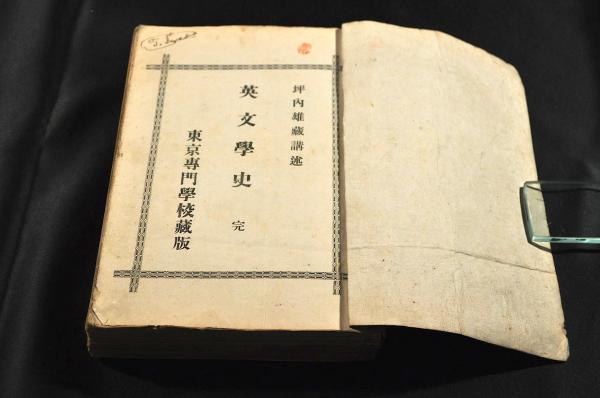 坪內雄藏講述
英文學史 完
東京專門學校藏版